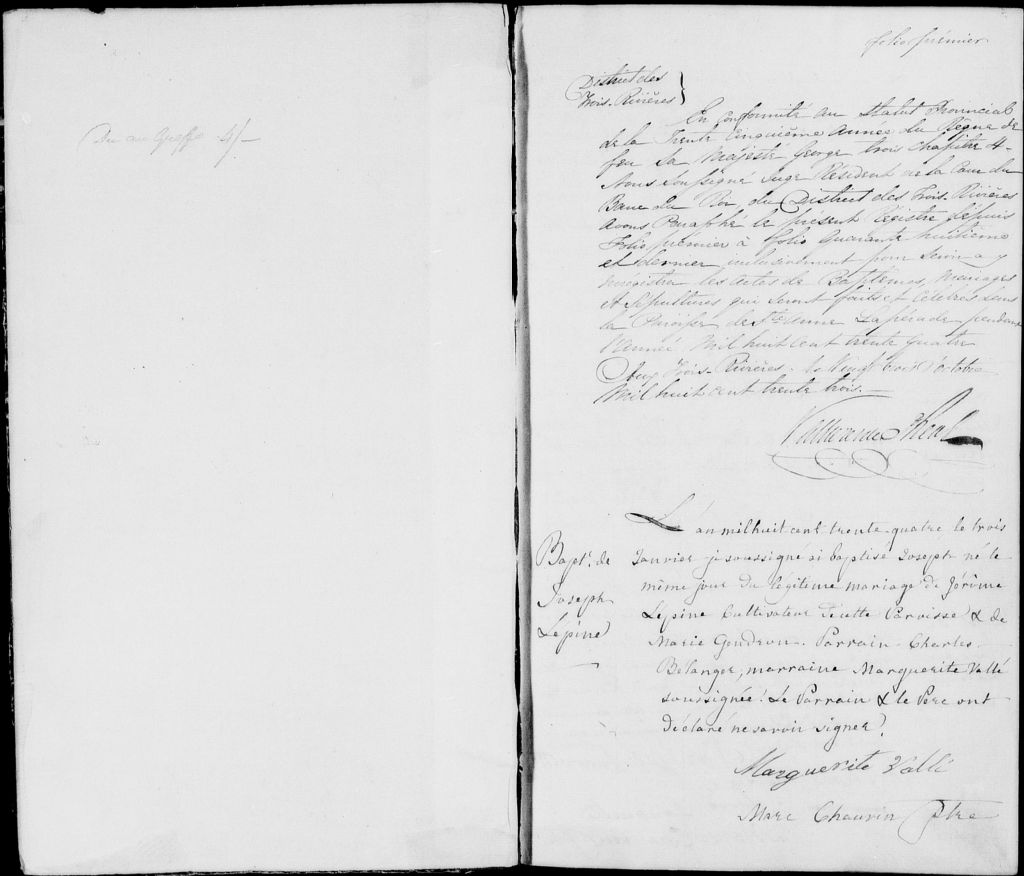 Du au Greffe 4/-
folio prémier
District des
Trois-Rivières }
En Conformité au Statut Provincial
de la Trente Cinquième Année du Règne de
feu Sa Majesté George trois Chapitre 4-
Nous Soussigné Juge Résident de la Cour du
Banc du Roi, du District des Trois-Rivières
avons Paraphé le présent Régistre depuis
Folio prémier à folio Quarante huitième
et dernier inclusivement pour Servir a y
enregistrer les actes de Baptêmes, Mariages
et Sépultures qui seront faits et Célébrés dans
la Paroisse de Ste Anne Lapérade pendant
l'Année Mil huit cent trente quatre
Aux Trois-Rivières. le Vingt trois Octobre
Mil huit cent trente trois.—
L'an mil huit cent trente quatre, le trois
Janvier je soussigné ai baptisé Joseph né le
même jour du légitime mariage de Jérôme
Lépine Cultivateur de cette Paroisse & de
Marie Gendron. Parrain Charles
Bélanger, marraine Marguerite Vallé
soussignée. Le Parrain & le Pere ont
déclaré ne savoir signer.
Bapt. de
Joseph
Lépine
Marguerite Vallé
Marc Chauvin Ptre